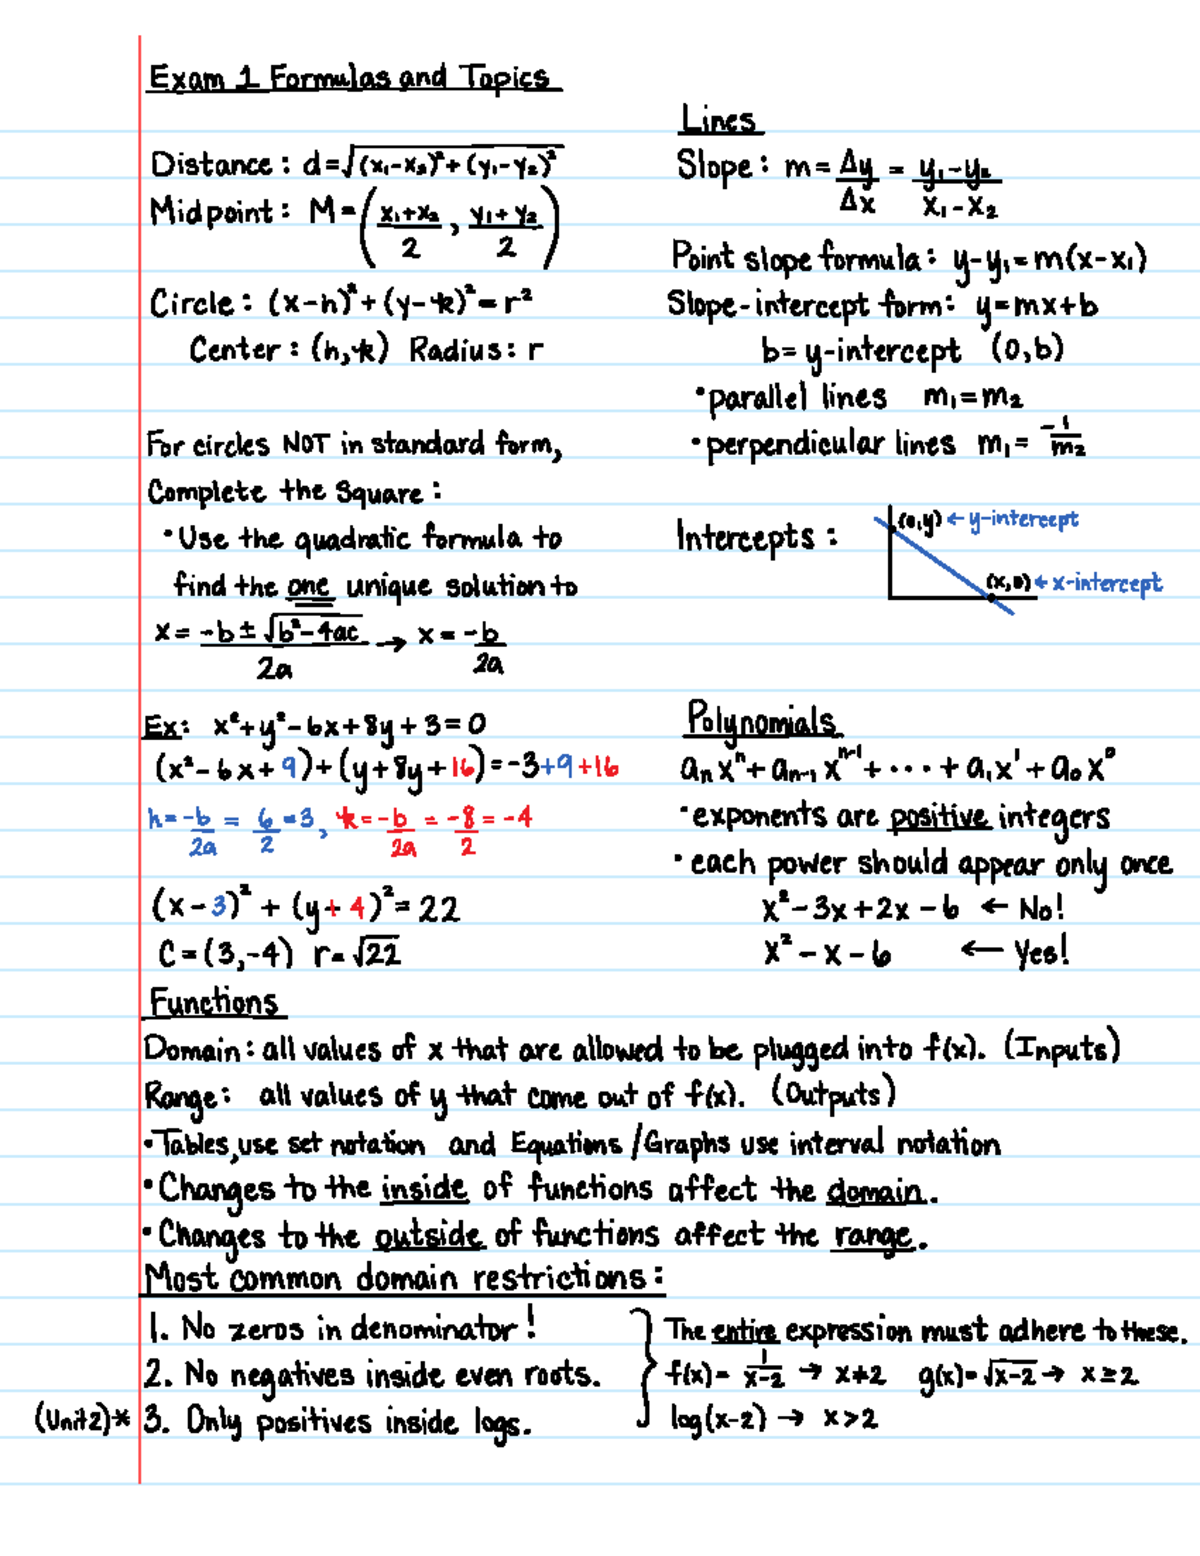 Exam 1 Formulas and Topics
Distance: d=√(x₁-x₂)²+(y₁-y₂)²
Midpoint: M=(x₁+x₂/2, y₁+y₂/2)
Circle: (x-h)²+(y-k)²=r²
Center: (h,k) Radius: r
For circles NOT in standard form,
Complete the Square:
•Use the quadratic formula to
find the one unique solution to
x= -b±√b²-4ac/2a → x= -b/2a
Ex: x²+y²-6x+8y+3=0
(x²-6x+9)+(y+8y+16)=-3+9+16
h=-b/2a = 6/2=3, k=-b/2a = -8/2 = -4
(x-3)² + (y+4)²=22
C=(3,-4) r=√22
Lines
Slope: m= Δy/Δx = y₁-y₂/x₁-x₂
Point slope formula: y-y₁=m(x-x₁)
Slope-intercept form: y=mx+b
b= y-intercept (0,b)
•parallel lines m₁=m₂
•perpendicular lines m₁= -1/m₂
Intercepts:
(0,y) ← y-intercept
(x,0) ← x-intercept
Polynomials
aₙxⁿ+aₙ₋₁xⁿ⁻¹+•••+a₁x¹+a₀x⁰
•exponents are positive integers
•each power should appear only once
x²-3x+2x-6 ← No!
x²-x-6 ← Yes!
Functions
Domain: all values of x that are allowed to be plugged into f(x). (Inputs)
Range: all values of y that come out of f(x). (Outputs)
•Tables, use set notation and Equations/Graphs use interval notation
•Changes to the inside of functions affect the domain.
•Changes to the outside of functions affect the range.
Most common domain restrictions:
1. No zeros in denominator!
2. No negatives inside even roots.
(Unit2)* 3. Only positives inside logs.
The entire expression must adhere to these.
f(x)= 1/x-2 → x≠2 g(x)=√x-2 → x≥2
log(x-2) → x>2